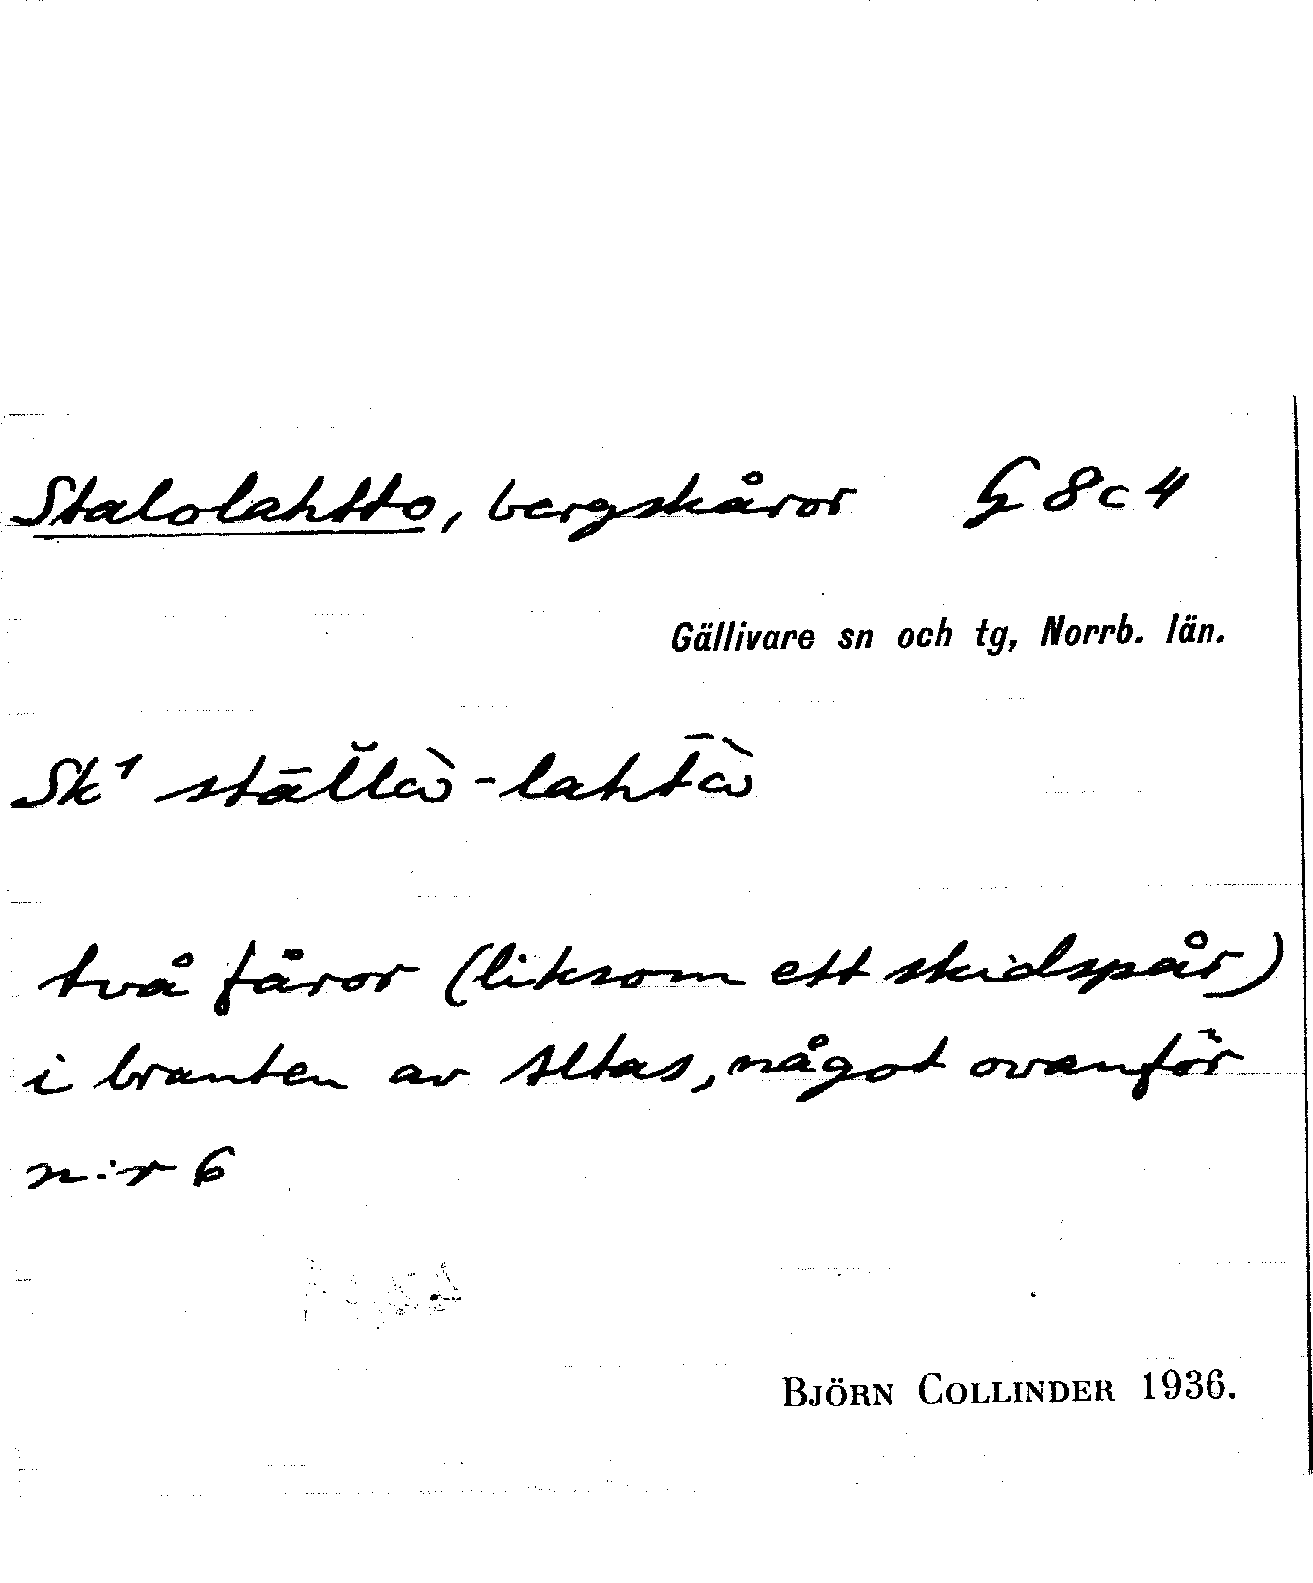 Stalolahtto, bergskåror G 8 c 4
Gällivare sn och tg, Norrb. län.
Sk¹ stāl̆lɑ̀-laht̄ɑ̀
två fåror (liksom ett skidspår)
i branten av Altas, något ovanför
n:r 6
BJÖRN COLLINDER 1936.